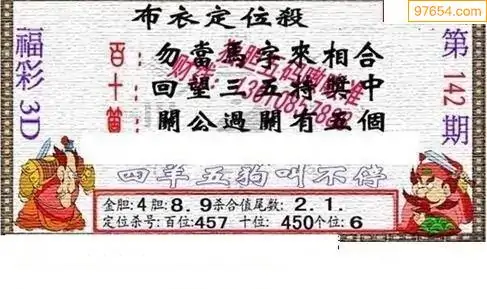 97654.com
布衣定位殺
福彩3D
第142期
百：勿當馬字來相合
十：回望三五特獎中
個：關公過關有五個
四羊五狗叫不停
金胆:4胆:8.9杀合值尾数:2.1.
定位杀号:百位:457 十位:450个位:6